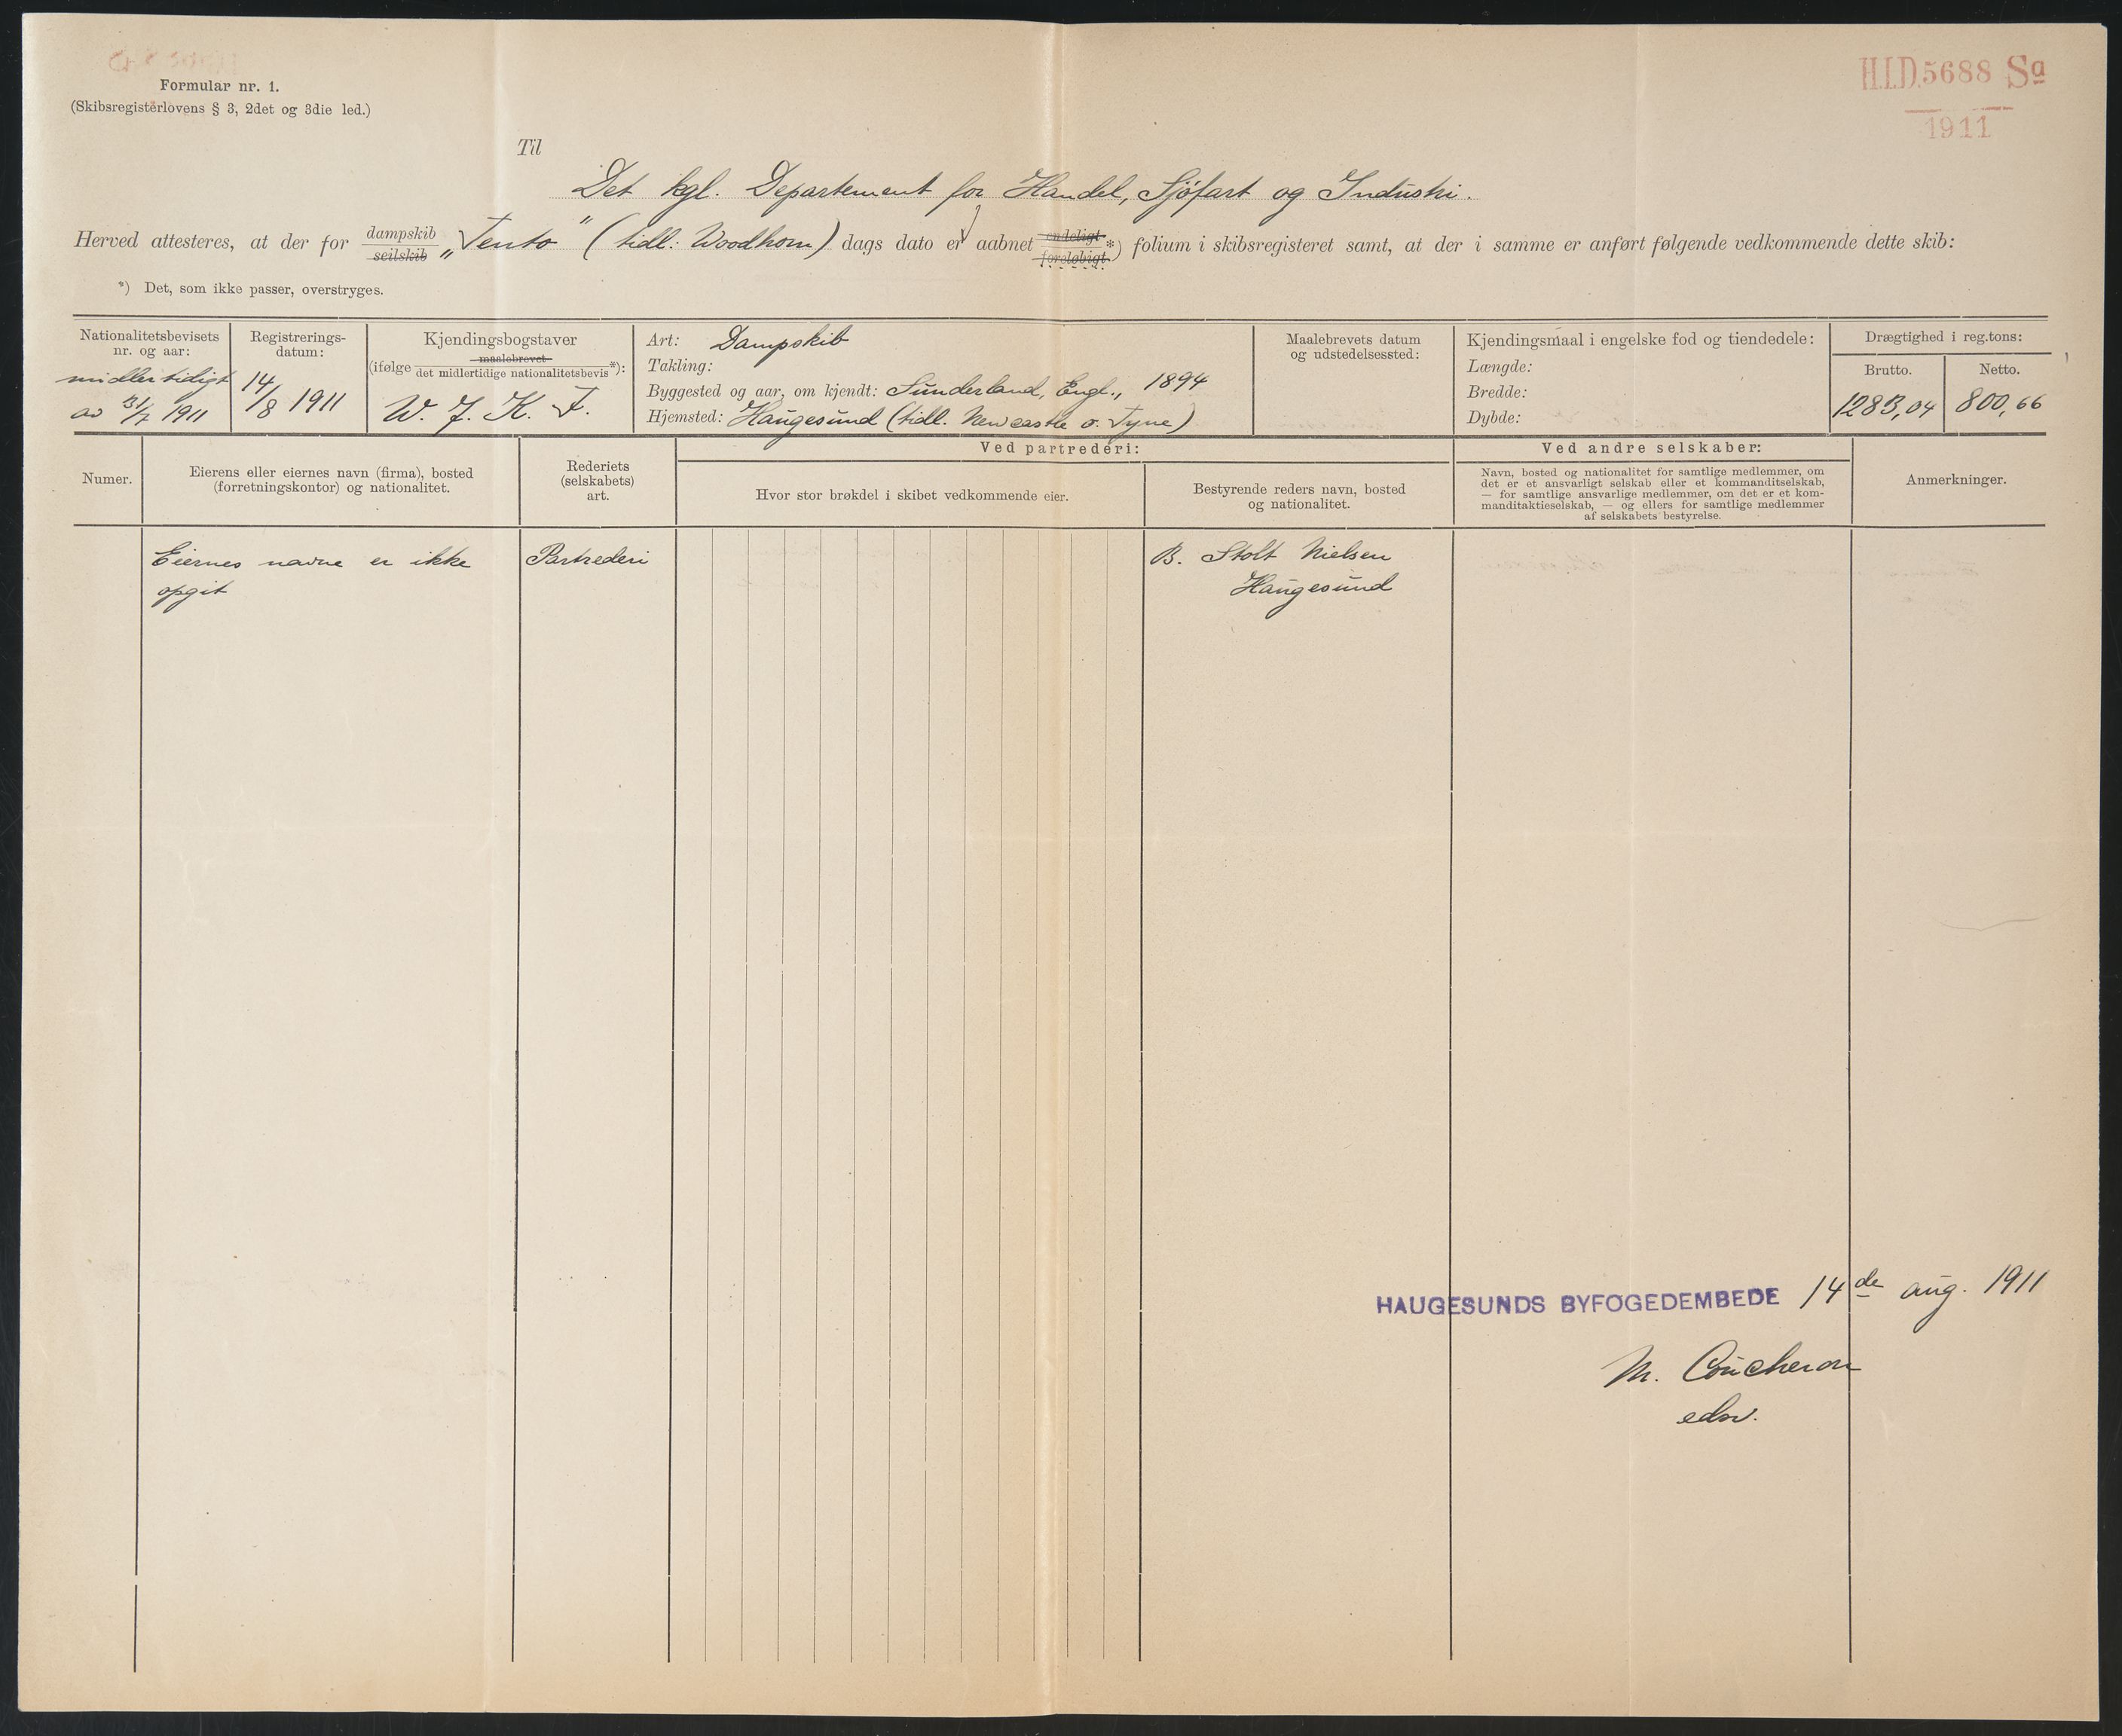 Formular nr. 1.
(Skibsregisterlovens § 3, 2det og 3die led.)
H.I.D. 5688 Sa
1911
Til
Det kgl. Departement for Handel, Sjøfart og Industri.
Herved attesteres, at der for dampskib seilskib „Tento" (tidl.: Woodhorn) dags dato er aabnet endeligt foreløbigt *) folium i skibsregisteret samt, at der i samme er anført følgende vedkommende dette skib:
*) Det, som ikke passer, overstryges.
Nationalitetsbevisets nr. og aar:
midlertidigt
av 31/7 1911
Registrerings-datum:
14/8 1911
Kjendingsbogstaver
(ifølge maalebrevet det midlertidige nationalitetsbevis*):
W. J. K. F.
Art: Dampskib
Takling:
Byggested og aar, om kjendt: Sunderland, Engl., 1894
Hjemsted: Haugesund (tidl. Newcastle o. Tyne)
Maalebrevets datum
og udstedelsessted:
Kjendingsmaal i engelske fod og tiendedele:
Længde:
Bredde:
Dybde:
Drægtighed i reg.tons:
Brutto. Netto.
1283,04 800,66
Numer.
Eierens eller eiernes navn (firma), bosted
(forretningskontor) og nationalitet.
Rederiets
(selskabets)
art.
Ved partrederi:
Hvor stor brøkdel i skibet vedkommende eier.
Bestyrende reders navn, bosted
og nationalitet.
Ved andre selskaber:
Navn, bosted og nationalitet for samtlige medlemmer, om
det er et ansvarligt selskab eller et kommanditselskab,
— for samtlige ansvarlige medlemmer, om det er et kom-
manditaktieselskab, — og ellers for samtlige medlemmer
af selskabets bestyrelse.
Anmerkninger.
Eiernes navne er ikke
opgit
Partrederi
B. Stolt Nielsen
Haugesund
HAUGESUNDS BYFOGEDEMBEDE 14de aug. 1911
M. Coucheron
edsv.